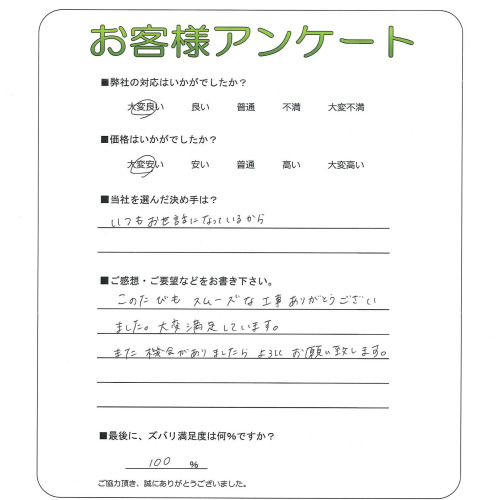 お客様アンケート
■弊社の対応はいかがでしたか？
大変良い 良い 普通 不満 大変不満
■価格はいかがでしたか？
大変安い 安い 普通 高い 大変高い
■当社を選んだ決め手は？
いつもお世話になっているから
■ご感想・ご要望などをお書き下さい。
このたびも スムーズな工事ありがとうござい
ました。大変満足しています。
また機会がありましたら よろしくお願い致します。
■最後に、ズバリ満足度は何%ですか？
100 %
ご協力頂き、誠にありがとうございました。